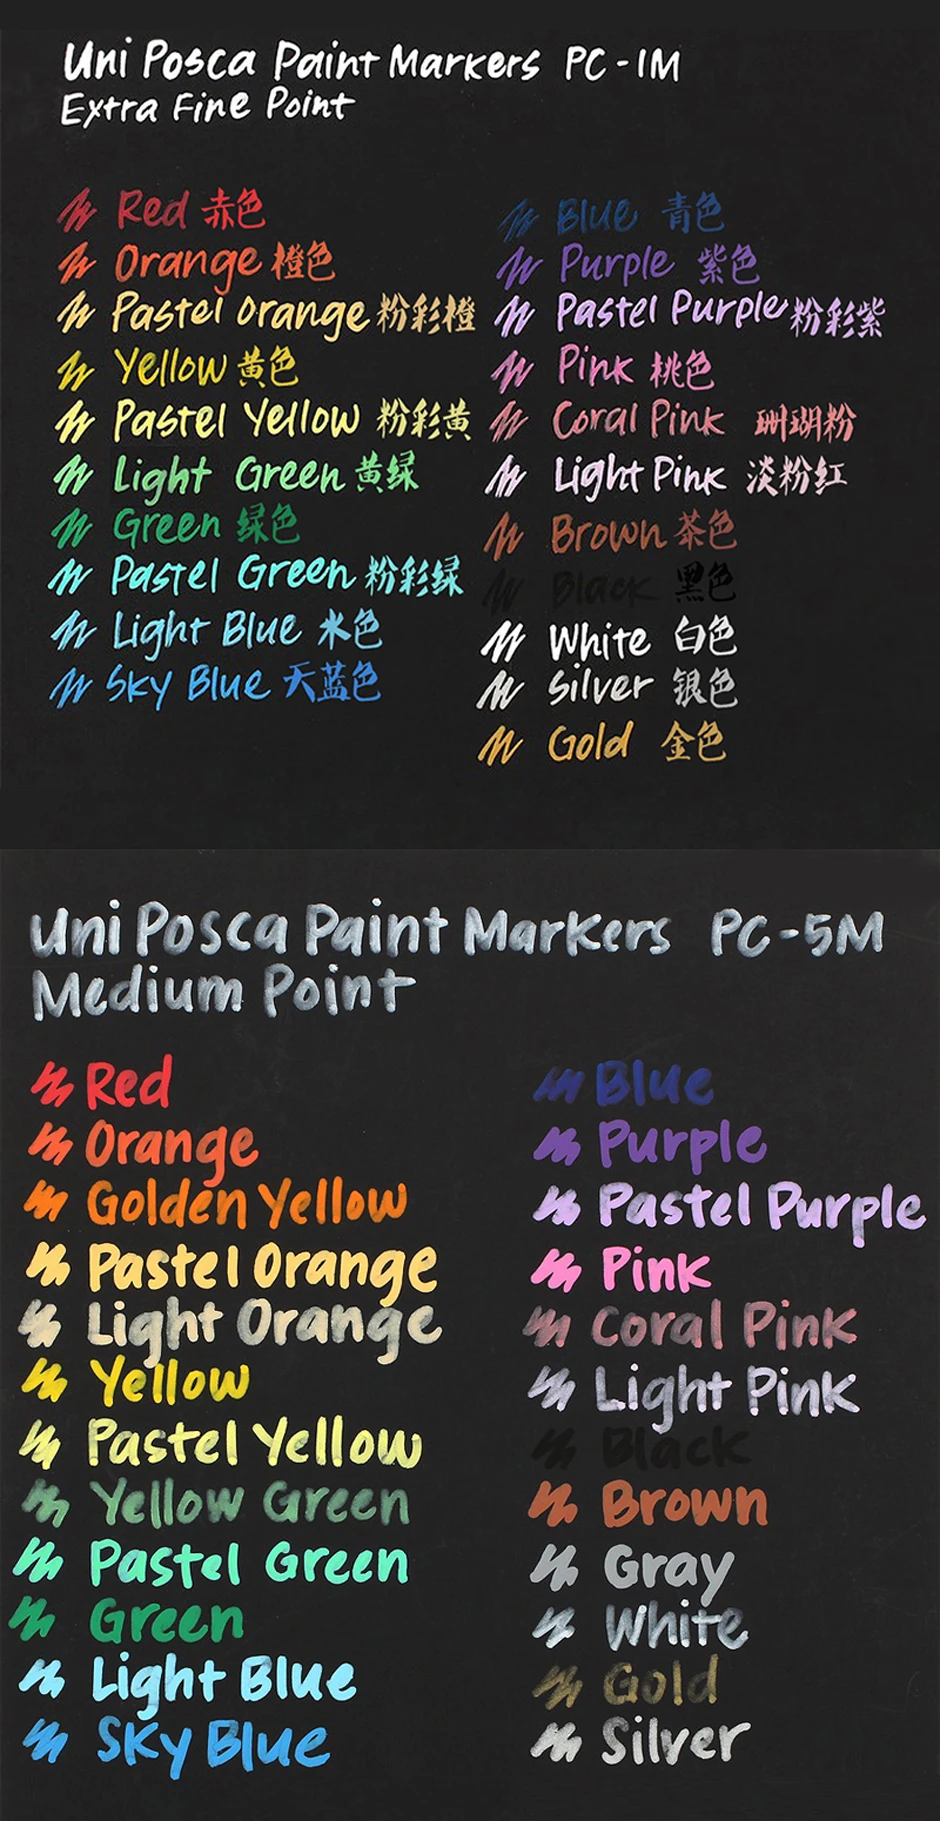 Uni Posca Paint Markers PC-1M
Extra Fine Point
Red 赤色
Orange 橙色
Pastel Orange 粉彩橙
Yellow 黄色
Pastel Yellow 粉彩黄
Light Green 黄绿
Green 绿色
Pastel Green 粉彩绿
Light Blue 水色
Sky Blue 天蓝色
Blue 青色
Purple 紫色
Pastel Purple 粉彩紫
Pink 桃色
Coral Pink 珊瑚粉
Light Pink 淡粉红
Brown 茶色
Black 黑色
White 白色
Silver 银色
Gold 金色
Uni Posca Paint Markers PC-5M
Medium Point
Red
Orange
Golden Yellow
Pastel Orange
Light Orange
Yellow
Pastel Yellow
Yellow Green
Pastel Green
Green
Light Blue
Sky Blue
Blue
Purple
Pastel Purple
Pink
Coral Pink
Light Pink
Black
Brown
Gray
White
Gold
Silver